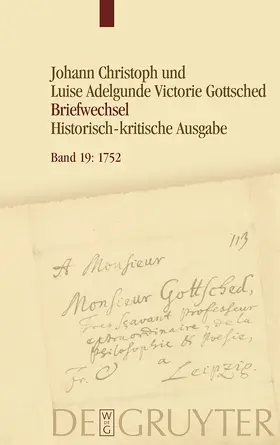 Johann Christoph und
Luise Adelgunde Victorie Gottsched
Briefwechsel
Historisch-kritische Ausgabe
Band 19: 1752
113
A Monsieur
Monsieur Gottsched,
Tres savant professeur
extraordinaire, de la
philosophie & Poesie,
Fr. a Leipzig.
W
DE
G
DE GRUYTER